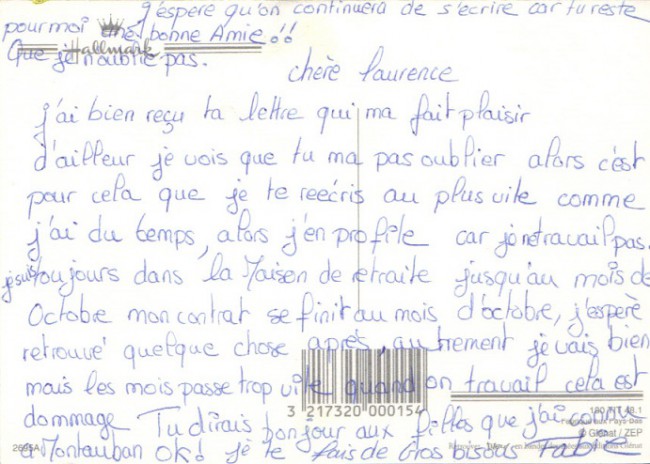 j'espère qu'on continuera de s'écrire car tu reste
pour moi une bonne Amie !!
Hallmark
Que je n'oublie pas.
chère Laurence
j'ai bien reçu ta lettre qui ma fait plaisir
d'ailleur je vois que tu ma pas oublier alors c'est
pour cela que je te reécris au plus vite comme
j'ai du temps, alors j'en profite car je retravail pas.
je suis toujours dans la Maison de retraite jusqu'au mois de
Octobre mon contrat se finit au mois d'octobre, j'espère
retrouvé quelque chose après, autrement je vais bien
mais les mois passe trop vite quand on travail cela est
dommage Tu dirais bonjour aux filles que j'ai connu
3 217320 000154
© Glénat / ZEP
2695A
a Montauban OK! je te fais de Gros bisous